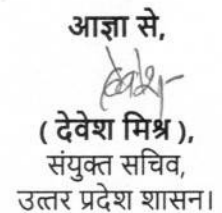 आज्ञा से,
( देवेश मिश्र ),
संयुक्त सचिव,
उत्तर प्रदेश शासन।